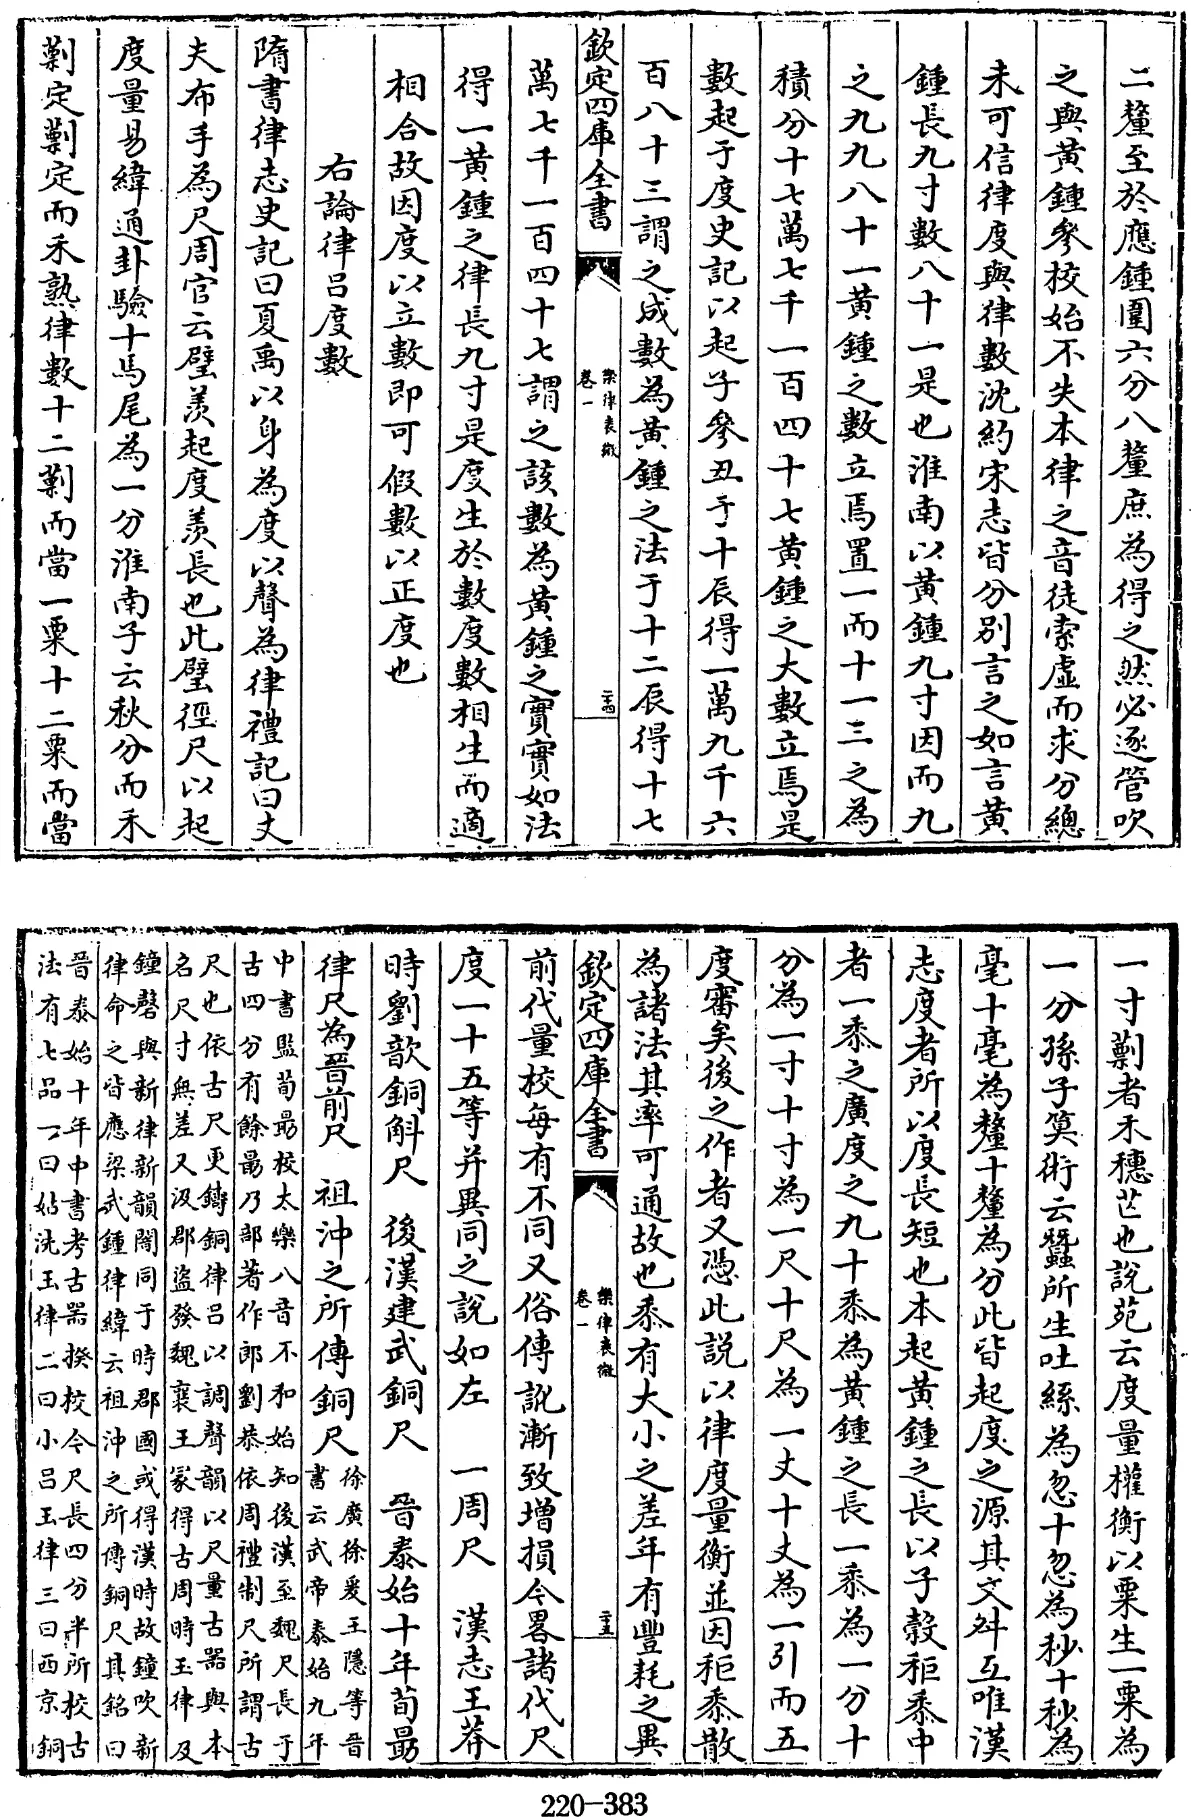 二釐至於應鍾圍六分八釐庶為得之然必逐管吹
之與黄鍾參校始不失本律之音徒索虚而求分總
未可信律度與律數沈約宋志皆分别言之如言黄
鍾長九寸數八十一是也淮南以黄鍾九寸因而九
之九九八十一黄鍾之數立焉置一而十一三之為
積分十七萬七千一百四十七黄鍾之大數立焉是
數起于度史記以起子參丑于十辰得一萬九千六
百八十三謂之成數為黄鍾之法于十二辰得十七
欽定四庫全書
樂律表微
卷一
二十四
萬七千一百四十七謂之該數為黄鍾之實實如法
得一黄鍾之律長九寸是度生於數度數相生而適
相合故因度以立數即可假數以正度也
右論律呂度數
隋書律志史記曰夏禹以身為度以聲為律禮記曰丈
夫布手為尺周官云璧羡起度羡長也此璧徑尺以起
度量易緯通卦驗十馬尾為一分淮南子云秋分而禾
䅺定䅺定而禾熟律數十二䅺而當一粟十二粟而當
一寸䅺者禾穗芒也說苑云度量權衡以粟生一粟為
一分孫子算術云蠶所生吐絲為忽十忽為秒十秒為
毫十毫為釐十釐為分此皆起度之源其文舛互唯漢
志度者所以度長短也本起黄鍾之長以子穀秬黍中
者一黍之廣度之九十黍為黄鍾之長一黍為一分十
分為一寸十寸為一尺十尺為一丈十丈為一引而五
度審矣後之作者又憑此說以律度量衡並因秬黍散
為諸法其率可通故也黍有大小之差年有豐耗之異
欽定四庫全書
樂律表微
卷一
二十五
前代量校每有不同又俗傳訛漸致增損今畧諸代尺
度一十五等并異同之說如左　一周尺　漢志王莽
時劉歆銅斛尺　後漢建武銅尺　晉泰始十年荀勗
律尺為晉前尺　祖沖之所傳銅尺徐廣徐爰王隱等晉
書云武帝泰始九年
中書監荀勗校太樂八音不和始知後漢至魏尺長于
古四分有餘勗乃部著作郎劉恭依周禮制尺所謂古
尺也依古尺更鑄銅律呂以調聲韻以尺量古器與本
名尺寸無差又汲郡盜發魏襄王冢得古周時玉律及
鐘磬與新律新韻闇同于時郡國或得漢時故鐘吹新
律命之皆應梁武鍾律緯云祖沖之所傳銅尺其銘曰
晉泰始十年中書考古器揆校今尺長四分半所校古
法有七品一曰姑洗玉律二曰小呂玉律三曰西京銅
220-383